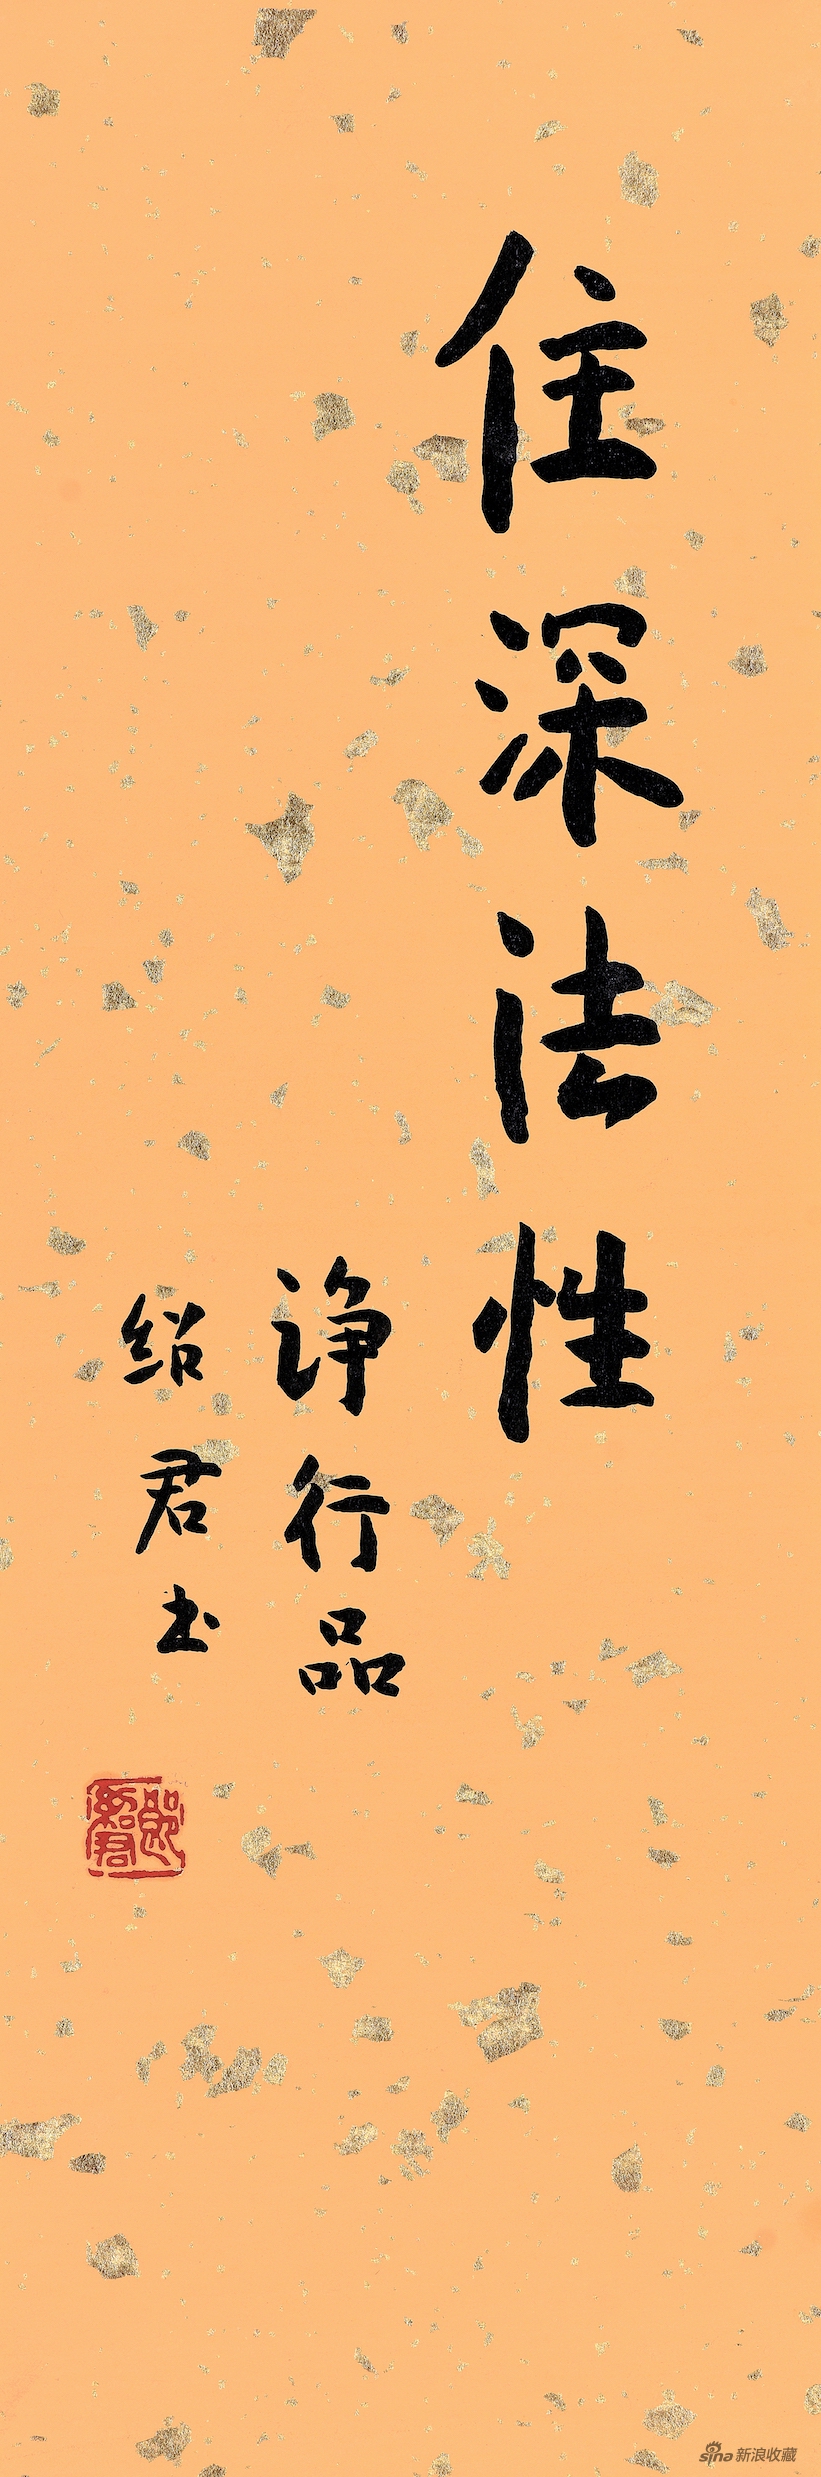 住深法性
净行品
绍君书
郎绍君
sina 新浪收藏